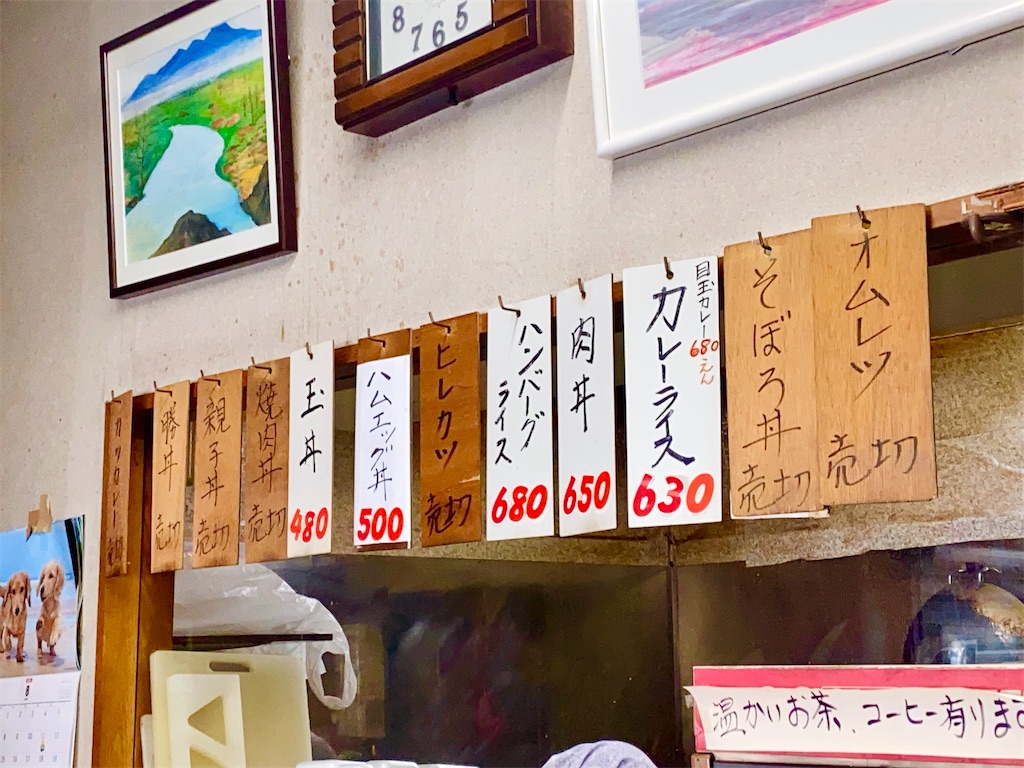 8 7 6 5
オムレツ
売切
そぼろ丼
売切
目玉カレー
680えん
カレーライス
630
肉丼
650
ハンバーグ
ライス
680
ヒレカツ
売切
ハムエッグ丼
500
玉丼
480
焼肉丼
売切
親子丼
売切
勝丼
売切
カツカレー
売切
8
温かいお茶、コーヒー有りま